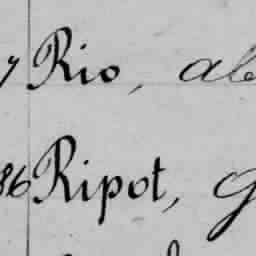 7 Rio, ab
86 Ripot, G